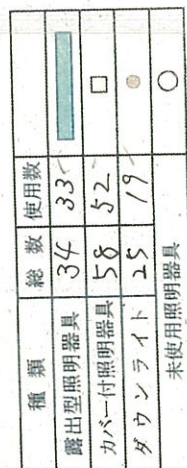 種類 総数 使用数
露出型照明器具 34 33
カバー付照明器具 58 52
ダウンライト 25 19
未使用照明器具